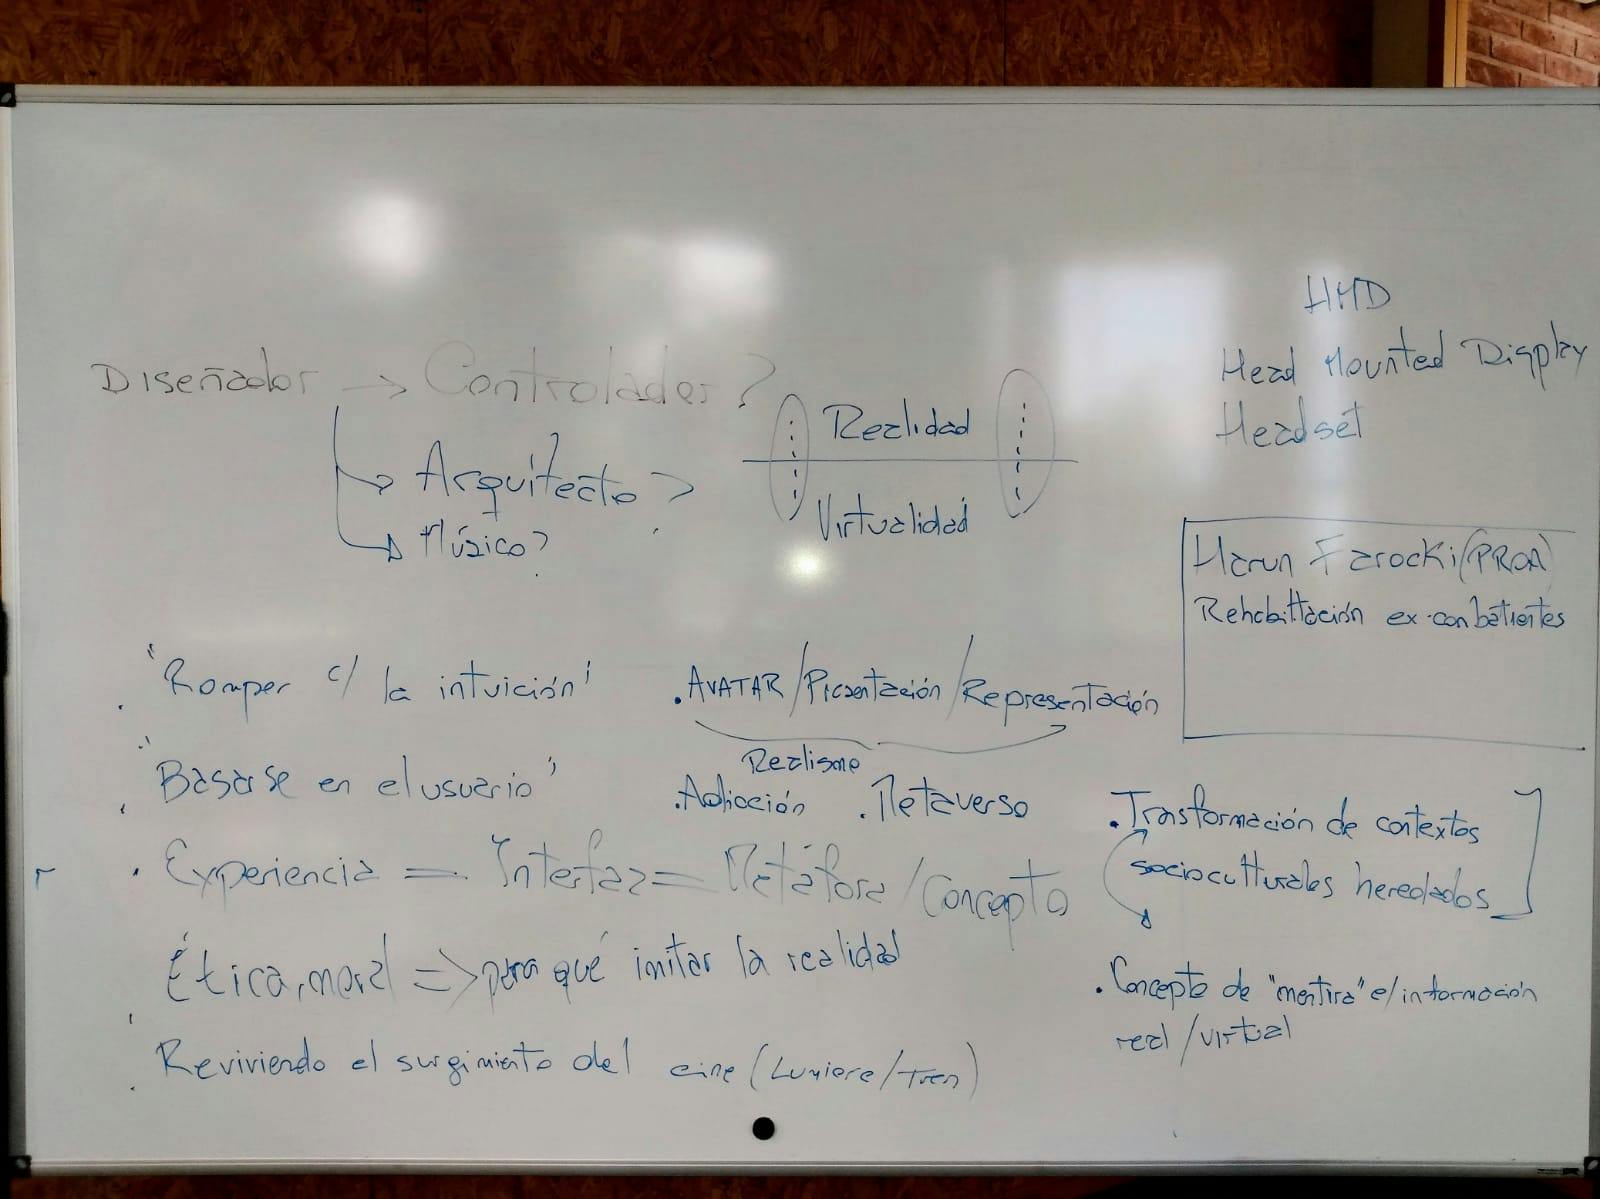 Diseñador → Controlador?
Arquitecto?
Músico?
Realidad
Virtualidad
HMD
Head Mounted Display
Headset
Harun Farocki (PROA)
Rehabilitación ex-conbatientes
"Romper c/ la intuición"
"Basarse en el usuario"
. Experiencia = Interfaz = Metáfora / Concepto
Ética, moral => para qué imitar la realidad
Reviviendo el surgimiento del cine (Lumiere/Tren)
. AVATAR / Presentación / Representación
Realismo
. Adicción . Metaverso
. Trasformación de contextos
socioculturales heredados
. Concepto de "mentira" e/ información
real / virtual